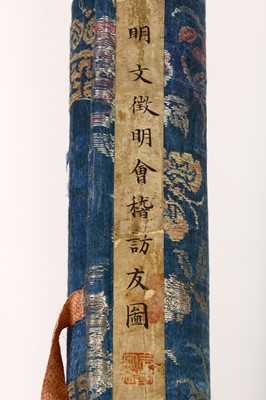 明文徵明會稽訪友圖